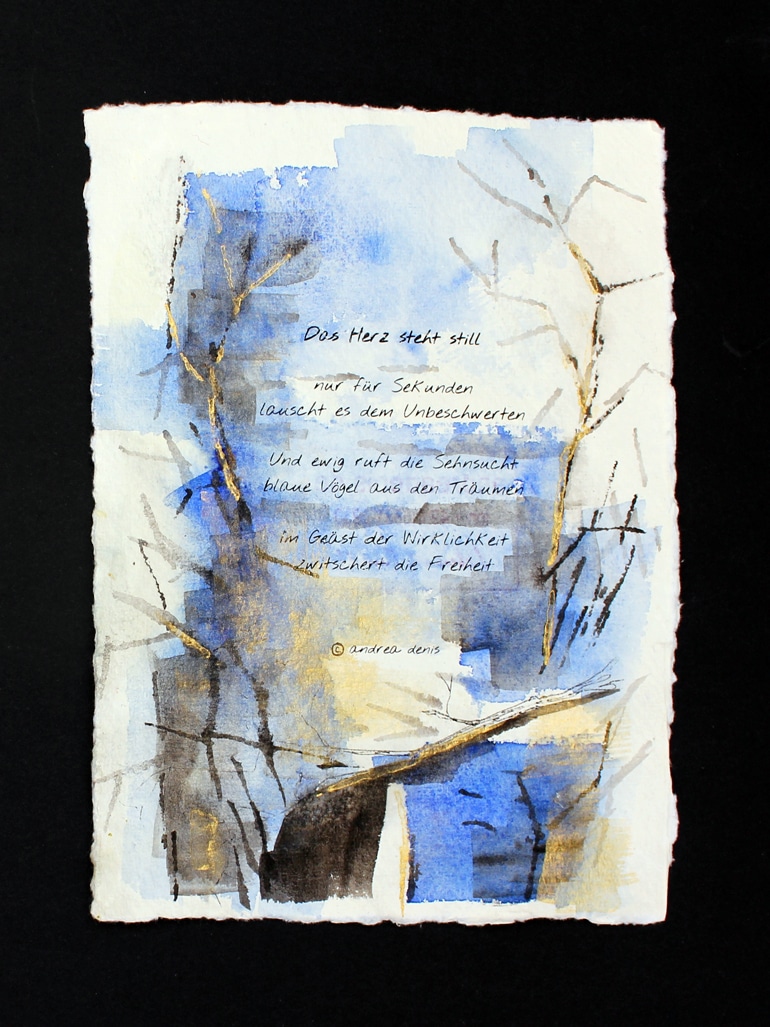 Das Herz steht still
nur für Sekunden
lauscht es dem Unbeschwerten
Und ewig ruft die Sehnsucht
blaue Vögel aus den Träumen
im Geäst der Wirklichkeit
zwitschert die Freiheit
© andrea denis